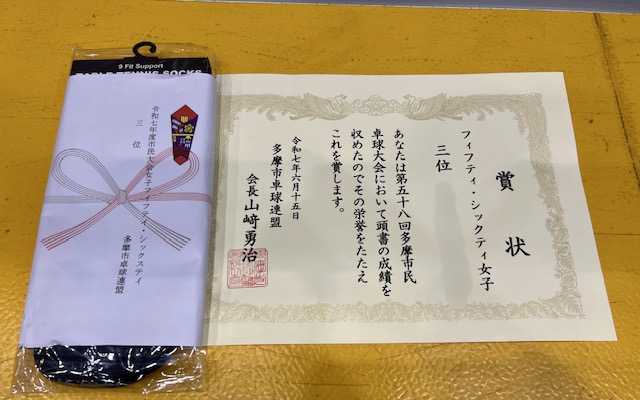 9 Fit Support
TABLE TENNIS SOCKS
令和七年度市民大会女子フィフティ・シックスティ
三位
多摩市卓球連盟
賞状
フィフティ・シックティ女子
三位
あなたは第五十八回多摩市民
卓球大会において頭書の成績を
収めたのでその栄誉をたたえ
これを賞します。
令和七年六月十五日
多摩市卓球連盟
会長山﨑勇治